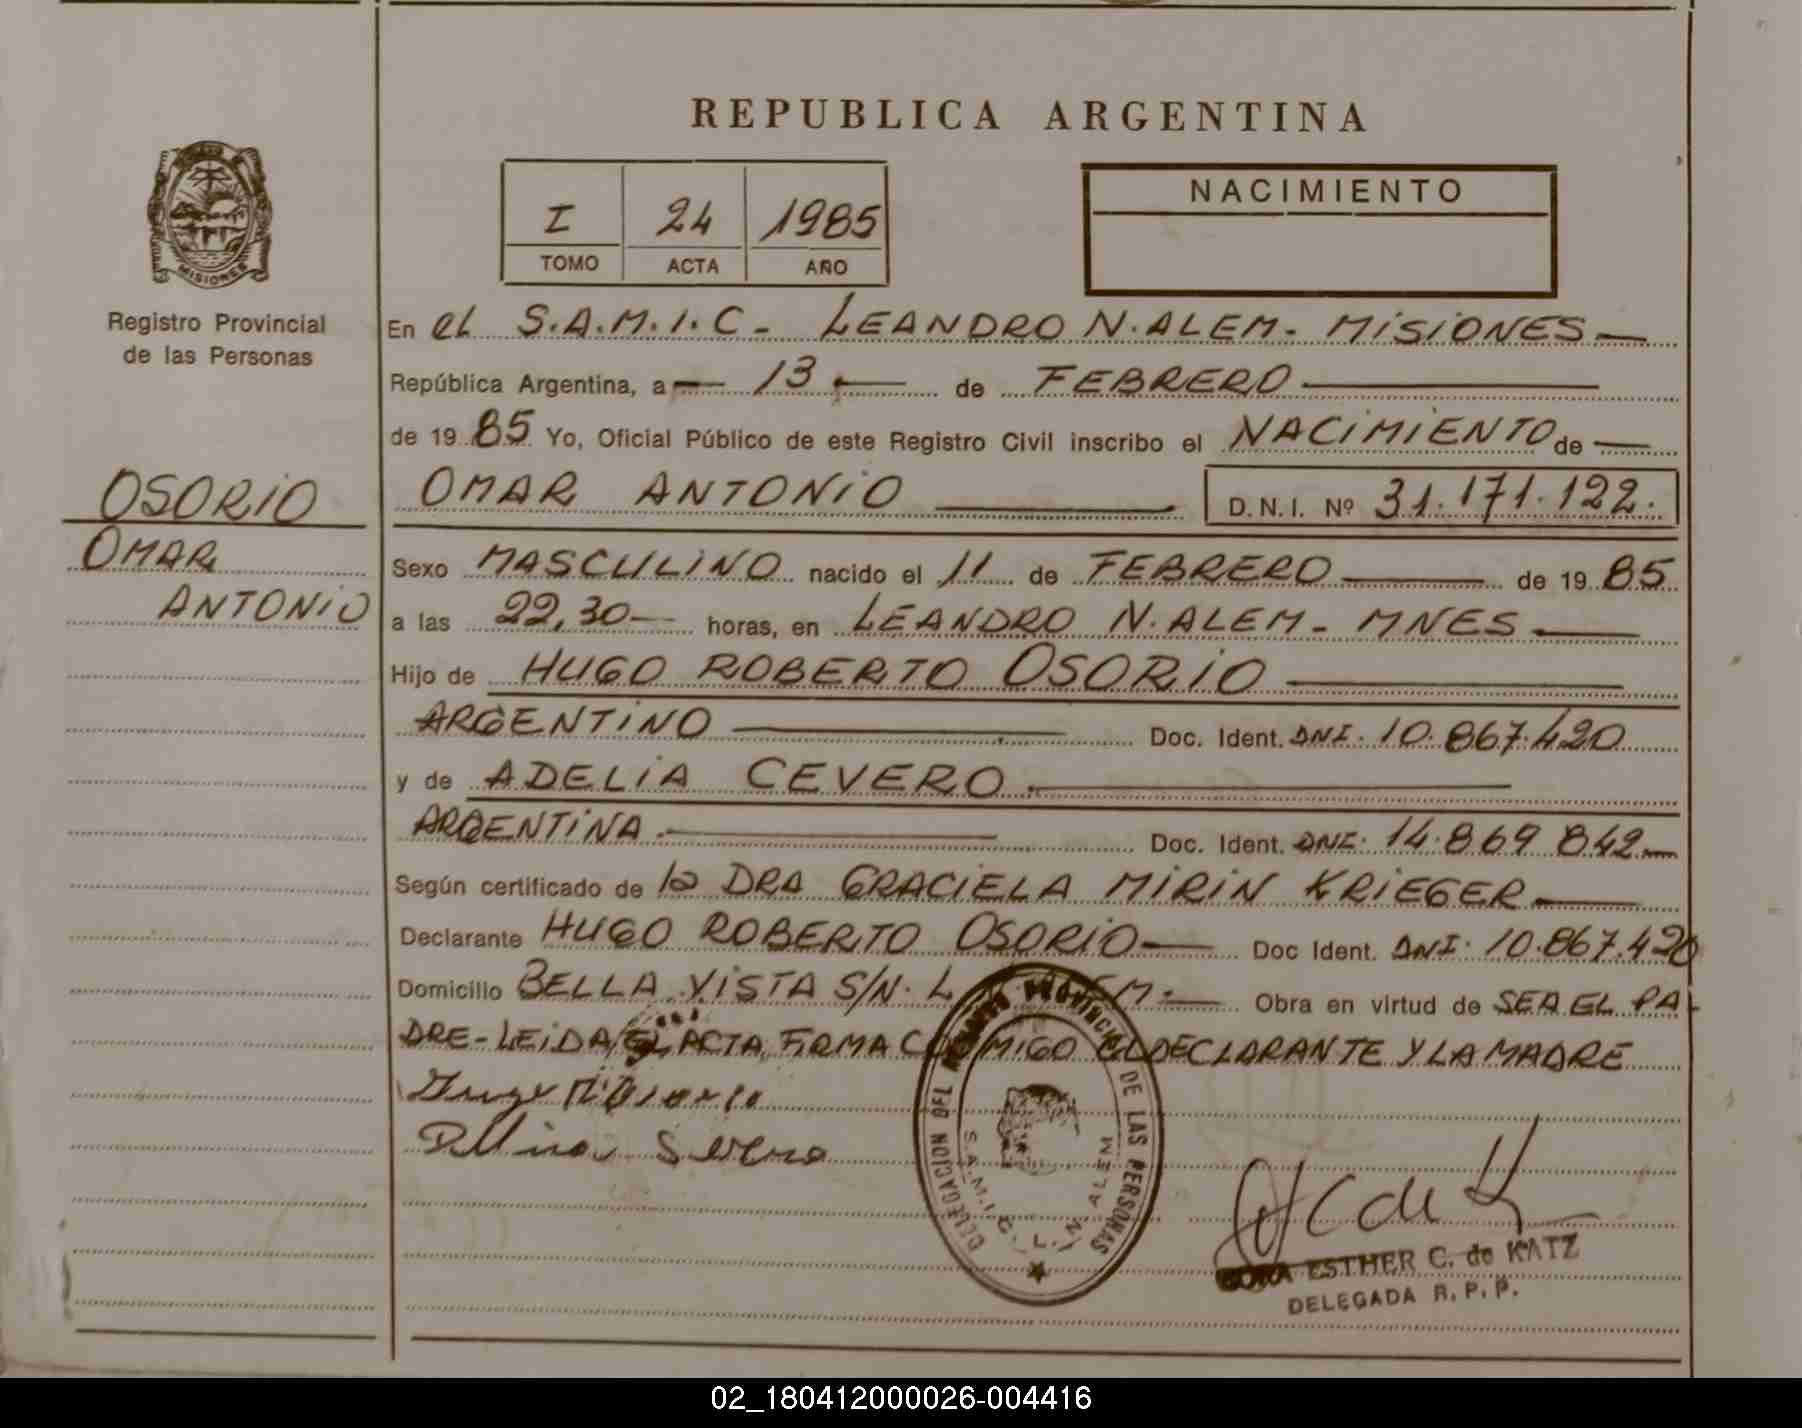 REPUBLICA ARGENTINA
I 24 1985
TOMO ACTA AÑO
NACIMIENTO
MISIONES
Registro Provincial
de las Personas
OSORIO
OMAR
ANTONIO
En el S.A.M.I.C- LEANDRO N. ALEM- MISIONES
República Argentina, a 13 de FEBRERO
de 1985 Yo, Oficial Público de este Registro Civil inscribo el NACIMIENTO de
OMAR ANTONIO D.N.I. Nº 31.171.122.
Sexo MASCULINO nacido el 11 de FEBRERO de 1985
a las 22,30 horas, en LEANDRO N. ALEM- MNES
Hijo de HUGO ROBERTO OSORIO
ARGENTINO Doc. Ident. DNI. 10.867.420
y de ADELIA CEVERO
ARGENTINA Doc. Ident. DNI. 14.869 842
Según certificado de la DRA GRACIELA MIRIN KRIEGER
Declarante HUGO ROBERTO OSORIO Doc Ident. DNI. 10.867.420
Domicilio BELLA VISTA S/N. L Obra en virtud de SER EL PA-
DRE-LEIDA EL ACTA, FIRMA CONMIGO EL DECLARANTE Y LA MADRE
DELEGACION DEL PROVINCIAL DE LAS PERSONAS
S.A.M.I.C. L. N. ALEM
ESTHER C. de KATZ
DELEGADA R.P.P.
02_180412000026-004416